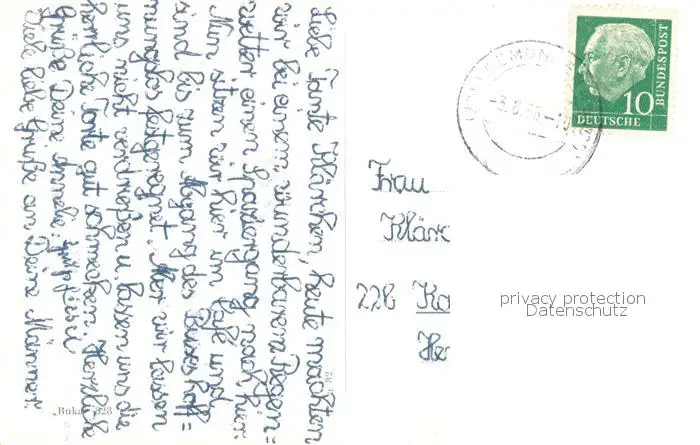 Liebe Tante Klärchen, heute machten
wir bei einem wunderbaren Regen=
wetter einen Spaziergang nach hier.
Nun sitzen wir hier im Café und
sind bis zum Abgang des Buses hoff=
nungslos festgeregnet. Aber wir lassen
uns nicht verdrießen u. lassen uns die
herrliche Torte gut schmecken. Herzliche
Grüße Deine Annele
Viele liebe Grüße an Deine Männer.
"Buka" 828
DEUTSCHE
BUNDESPOST
10
Frau
Klärc
22b Ka
He
privacy protection
Datenschutz